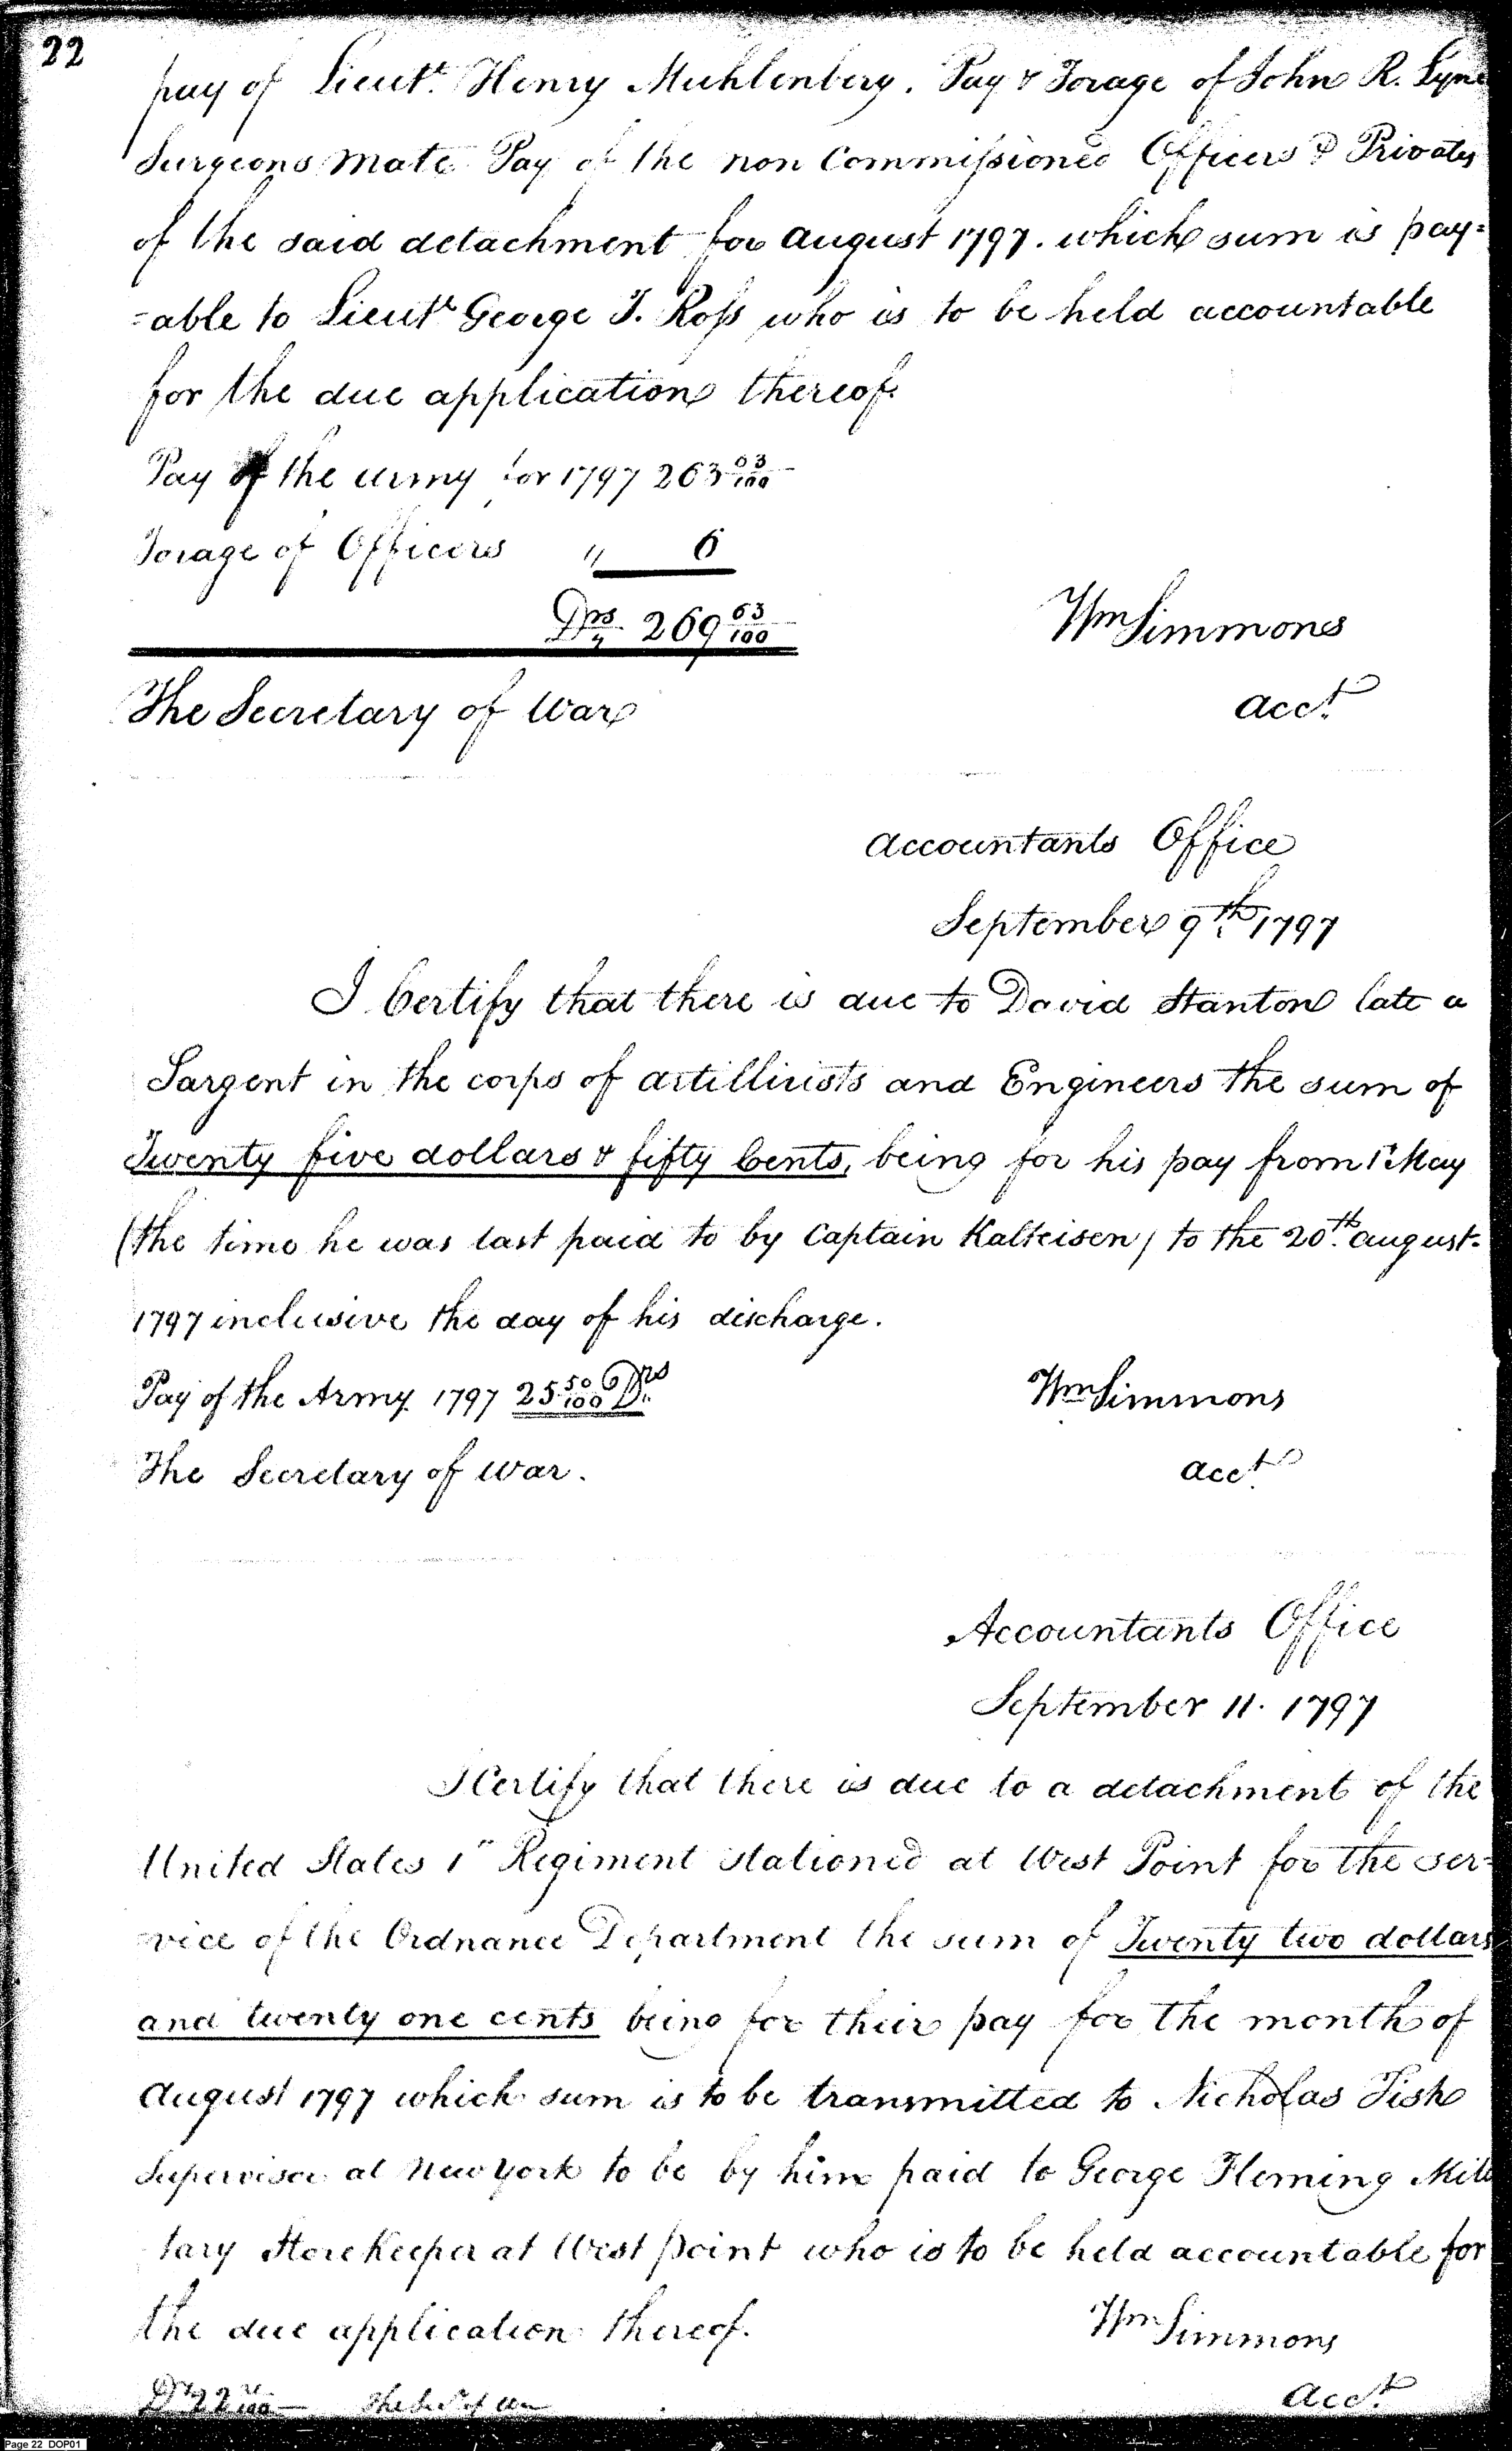 22
pay of Lieut.t Henry Muhlenberg. Pay & Forage of John R. Lyne
Surgeons Mate Pay of the non Commissioned Officers & Privates
of the said detachment for August 1797. which sum is pay=
=able to Lieut.t George T. Ross who is to be held accountable
for the due application thereof.
Pay of the Army for 1797 263 63/100
Forage of Officers " 6
Drs. 269 63/100
Wm Simmons
The Secretary of War
Acct.
Accountants Office
September 9th 1797
I Certify that there is due to David Stanton late a
Sargent in the corps of Artillirists and Engineers the sum of
Twenty five dollars & fifty Cents, being for his pay from 1st May
(the time he was last paid to by Captain Kalteisen) to the 20th August.
1797 inclusive the day of his discharge.
Pay of the Army 1797 25 50/100 Drs
Wm Simmons
The Secretary of War.
Acct.
Accountants Office
September 11. 1797
I Certify that there is due to a detachment of the
United States 1st Regiment stationed at West Point for the ser=
vice of the Ordnance Department the sum of Twenty two dollars
and twenty one cents being for their pay for the month of
August 1797 which sum is to be transmitted to Nicholas Fish
Supervisor at New York to be by him paid to George Fleming Mili
tary Store Keeper at West point who is to be held accountable for
the due application thereof.
Wm Simmons
Drs 22 21/100 The Sec.y of War
Acct.
Page 22 DOP01